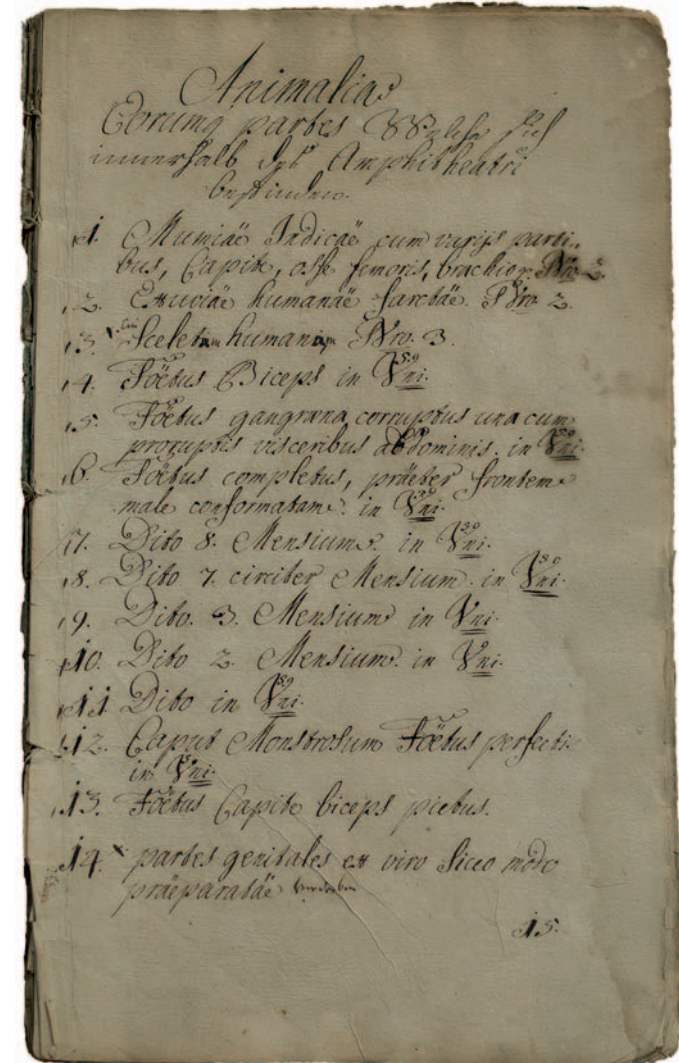 Animalia
Eorumq partes Welche sich
innerhalb des Amphitheatri
befinden.
1. Mumiäe Indicäe cum varijs parti-
bus, Capite, osse femoris, brachior. Nro. 2.
2. Exuviäe humanäe farctäe. Nro. 2.
3. Sceleta humana Nro. 3.
4. Föetus Biceps in Sp. Vni.
5. Föetus gangræna corruptus una cum
proruptis visceribus abdominis. in Sp. Vni.
6. Föetus completus, präeter frontem
male conformatam. in Sp. Vni.
7. Dito 8. Mensium. in Sp. Vni.
8. Dito 7. circiter Mensium. in Sp. Vni.
9. Dito. 3. Mensium in Vni.
10. Dito 2. Mensium. in Vni.
11 Dito in Sp. Vni.
12. Caput Monstrosum Föetus perfecti
in Sp. Vni.
13. Föetus Capite biceps pictus.
14. partes genitales ex viro Sicco modo
präeparatäe verdorben
15.